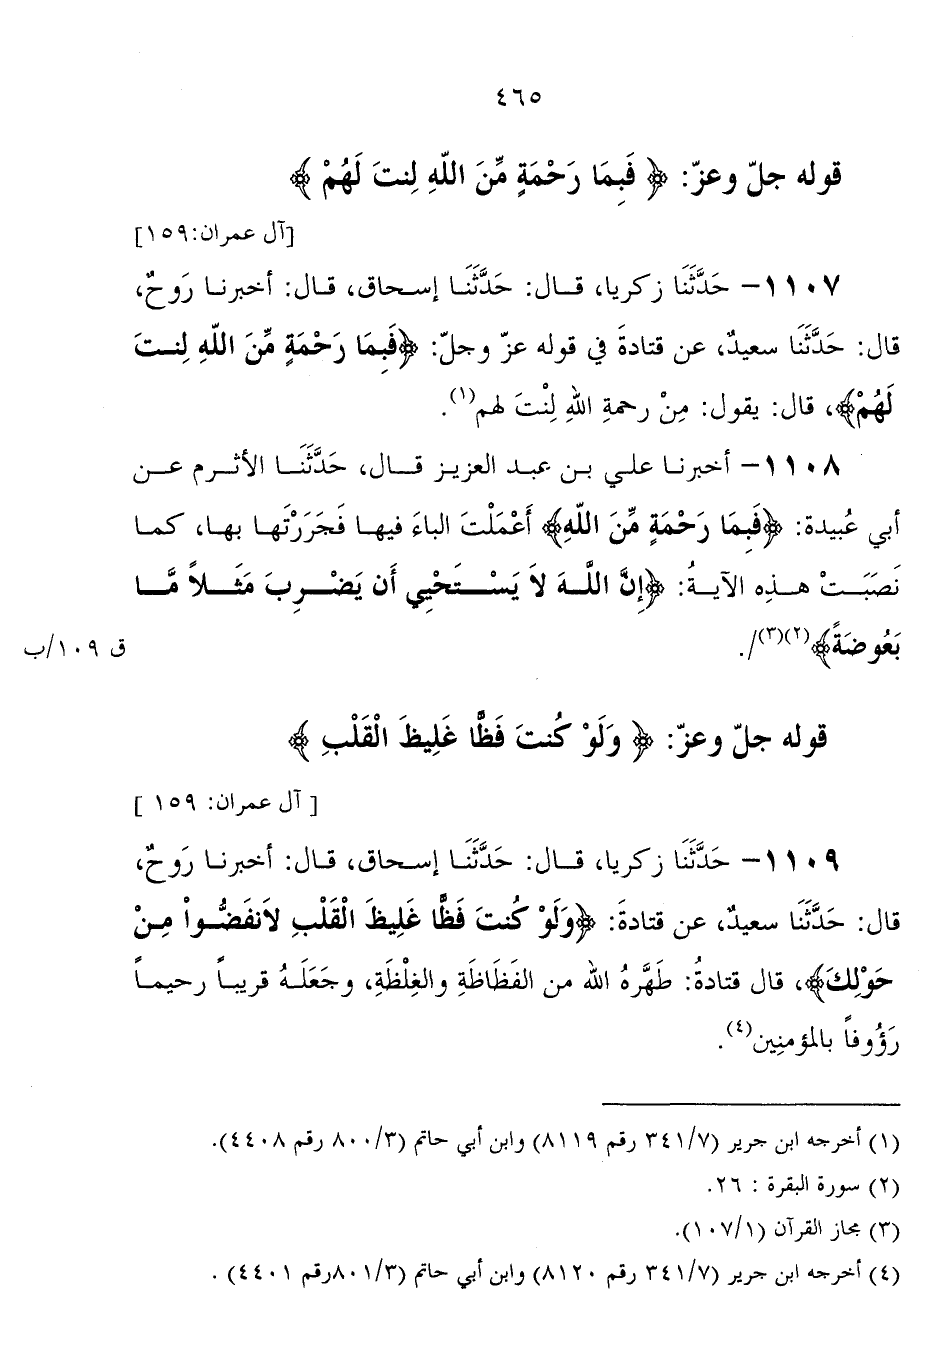 ٤٦٥
قوله جلّ وعزّ: ﴿ فَبِمَا رَحْمَةٍ مِّنَ اللّهِ لِنتَ لَهُمْ ﴾
[آل عمران:١٥٩]
١١٠٧- حَدَّثَنَا زكريا، قال: حَدَّثَنَا إسحاق، قال: أخبرنا رَوحٌ،
قال: حَدَّثَنَا سعيدٌ، عن قتادةَ في قوله عزّ وجلّ: ﴿فَبِمَا رَحْمَةٍ مِّنَ اللّهِ لِنتَ
لَهُمْ﴾، قال: يقول: مِنْ رحمةِ اللهِ لِنْتَ لهم(١).
١١٠٨- أخبرنا علي بن عبد العزيز قال، حَدَّثَنَا الأثرم عن
أبي عُبيدة: ﴿فَبِمَا رَحْمَةٍ مِّنَ اللّهِ﴾ أَعْمَلْتَ الباءَ فيها فَجَرَرْتَها بها، كما
نَصَبَتْ هذِه الآيةُ: ﴿إِنَّ اللَّهَ لاَ يَسْتَحْيِي أَن يَضْرِبَ مَثَلاً مَّا
بَعُوضَةً﴾(٢)(٣)/.
ق ١٠٩/ب
قوله جلّ وعزّ: ﴿ وَلَوْ كُنتَ فَظًّا غَلِيظَ الْقَلْبِ ﴾
[ آل عمران: ١٥٩ ]
١١٠٩- حَدَّثَنَا زكريا، قال: حَدَّثَنَا إسحاق، قال: أخبرنا رَوحٌ،
قال: حَدَّثَنَا سعيدٌ، عن قتادةَ: ﴿وَلَوْ كُنتَ فَظًّا غَلِيظَ الْقَلْبِ لاَنفَضُّواْ مِنْ
حَوْلِكَ﴾، قال قتادةُ: طَهَّرهُ الله من الفَظَاظَةِ والغِلْظَةِ، وجَعَلَهُ قريباً رحيماً
رَؤُوفاً بالمؤمنِين(٤).
(١) أخرجه ابن جرير (٣٤١/٧ رقم ٨١١٩) وابن أبي حاتم (٨٠٠/٣ رقم ٤٤٠٨).
(٢) سورة البقرة : ٢٦.
(٣) مجاز القرآن (١٠٧/١).
(٤) أخرجه ابن جرير (٣٤١/٧ رقم ٨١٢٠) وابن أبي حاتم (٨٠١/٣رقم ٤٤٠١) .